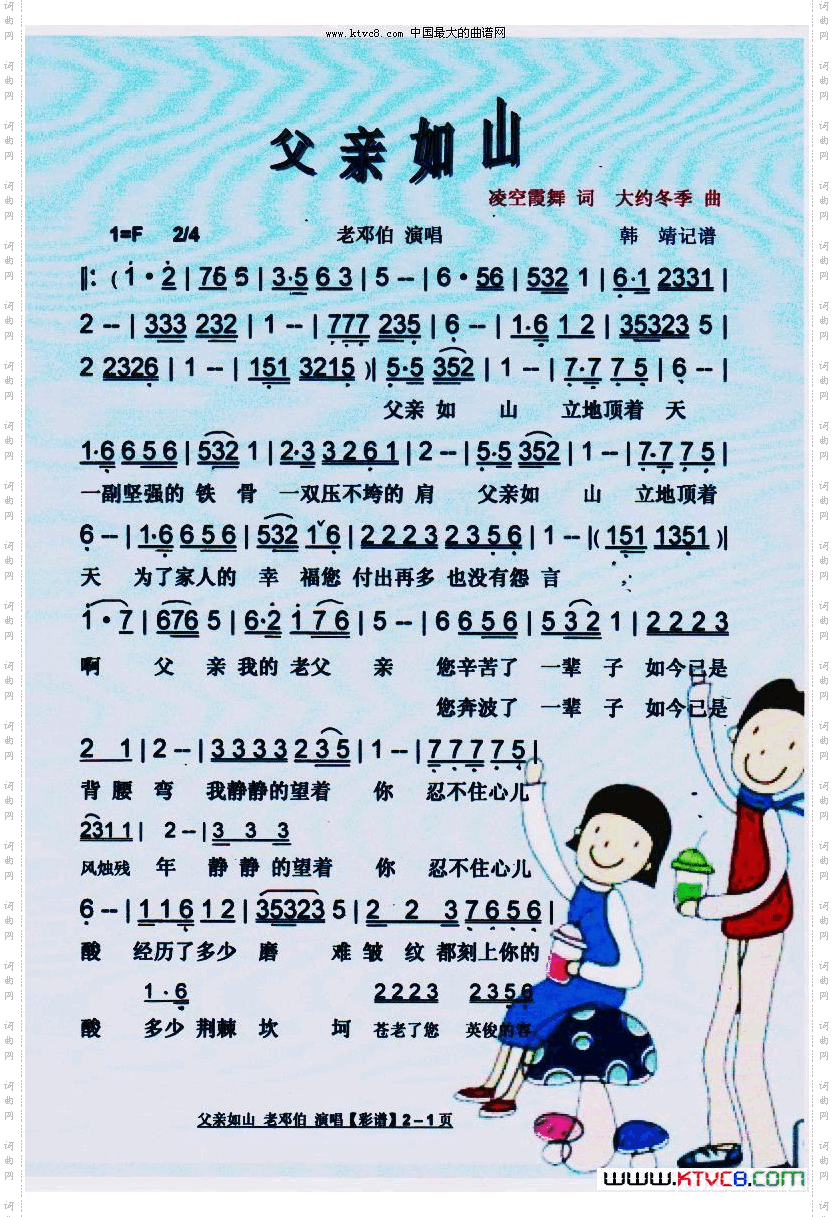 www.ktvc8.com 中国最大的曲谱网
父亲如山
凌空霞舞 词 大约冬季 曲
1=F 2/4 老邓伯 演唱 韩 靖记谱
‖: ( 1 · 2 | 76 5 | 3·5 6 3 | 5 -- | 6 · 56 | 532 1 | 6·1 2331 |
2 -- | 333 232 | 1 -- | 777 235 | 6 -- | 1·6 1 2 | 35323 5 |
2 2326 | 1 -- | 151 3215 )| 5·5 352 | 1 -- | 7·7 7 5 | 6 -- |
父亲 如 山 立地顶着 天
1·6 6 5 6 | 532 1 | 2·3 3 2 6 1 | 2 -- | 5·5 352 | 1 -- | 7·7 7 5 |
一副坚强的 铁 骨 一双压不垮的 肩 父亲如 山 立地顶着
6 -- | 1·6 6 5 6 | 532 1ˇ6 | 2 2 2 3 2 3 5 6 | 1 -- |( 151 1351 )|
天 为了家人的 幸 福您 付出再多 也没有怨 言
1 · 7 | 676 5 | 6·2 1 7 6 | 5 -- | 6 6 5 6 | 5 3 2 1 | 2 2 2 3
啊 父 亲 我的 老父 亲 您辛苦了 一辈 子 如今已是
您奔波了 一辈 子 如今已是
2 1 | 2 -- | 3 3 3 3 2 3 5 | 1 -- | 7 7 7 7 5 |
背 腰 弯 我静静的望着 你 忍不住心儿
231 1 | 2 -- | 3 3 3
风烛残 年 静 静 的望着 你 忍不住心儿
6 -- | 1 1 6 1 2 | 35323 5 | 2 2 3 7 6 5 6 |
酸 经历了多少 磨 难 皱 纹 都刻上你的
1 · 6 2 2 2 3 2 3 5 6
酸 多少 荆棘 坎 坷 苍老了您 英俊的容
父亲如山 老邓伯 演唱【彩谱】2－1页
www.KTVC8.com
词曲网